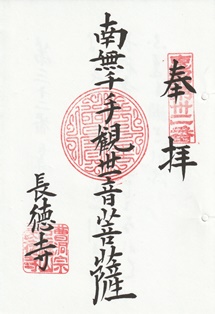 奉拝
南無千手観世音菩薩
長徳寺
曹洞宗